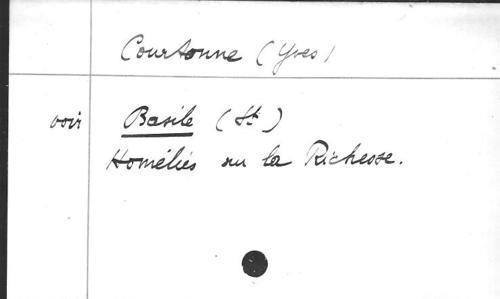 Courtonne (Yves)
voir Basile (St)
Homélies sur la Richesse.